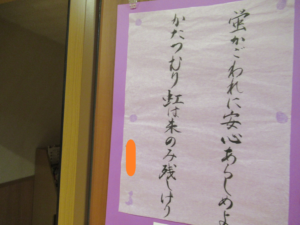 蛍かごわれに安心あらしめよ
かたつむり虹は朱のみ残しけり